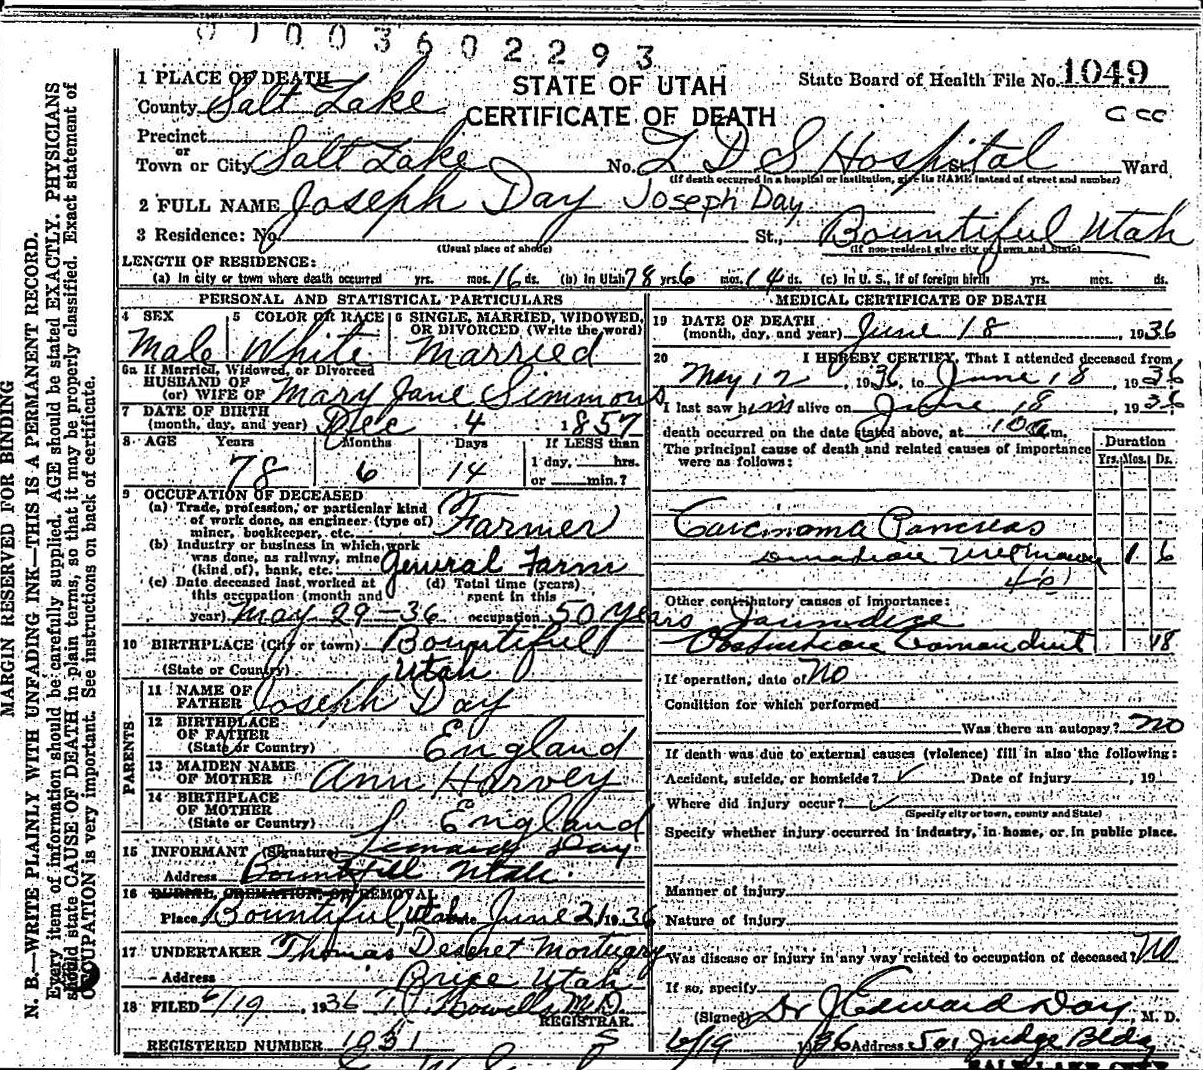 0 1 0 0 3 6 0 2 2 9 3
MARGIN RESERVED FOR BINDING
N. B.—WRITE PLAINLY WITH UNFADING INK—THIS IS A PERMANENT RECORD.
Every item of information should be carefully supplied. AGE should be stated EXACTLY. PHYSICIANS
should state CAUSE OF DEATH in plain terms, so that it may be properly classified. Exact statement of
OCCUPATION is very important. See instructions on back of certificate.
STATE OF UTAH
CERTIFICATE OF DEATH
State Board of Health File No. 1049
1 PLACE OF DEATH
County Salt Lake
Precinct
or
Town or City Salt Lake No. L D S Hospital St. Ward
(If death occurred in a hospital or institution, give its NAME instead of street and number)
2 FULL NAME Joseph Day Joseph Day
3 Residence: No. St., Bountiful Utah
(Usual place of abode) (If non-resident give city or town and State)
LENGTH OF RESIDENCE:
(a) In city or town where death occurred yrs. mos. 16 ds. (b) In Utah 78 yrs 6 mos. 14 ds. (c) In U. S., if of foreign birth yrs. mos. ds.
PERSONAL AND STATISTICAL PARTICULARS
4 SEX Male
5 COLOR OR RACE White
6 SINGLE, MARRIED, WIDOWED, OR DIVORCED (Write the word) Married
6a If Married, Widowed, or Divorced
HUSBAND OF
(or) WIFE OF Mary Jane Simmons
7 DATE OF BIRTH
(month, day, and year) Dec 4 1857
8 AGE Years Months Days If LESS than
78 6 14 1 day, hrs.
or min.?
9 OCCUPATION OF DECEASED
(a) Trade, profession, or particular kind
of work done, as engineer (type of)
miner, bookkeeper, etc. Farmer
(b) Industry or business in which work
was done, as railway, mine
(kind of), bank, etc. General Farm
(c) Date deceased last worked at
this occupation (month and
year) May 29-36
(d) Total time (years)
spent in this
occupation 50 years
10 BIRTHPLACE (City or town) Bountiful
(State or Country) Utah
PARENTS
11 NAME OF
FATHER Joseph Day
12 BIRTHPLACE
OF FATHER
(State or Country) England
13 MAIDEN NAME
OF MOTHER Ann Harvey
14 BIRTHPLACE
OF MOTHER
(State or Country) England
15 INFORMANT (Signature) Day
Address Bountifull Utah.
16 BURIAL, CREMATION, OR REMOVAL
Place Bountiful, Utah Date June 21 1936
17 UNDERTAKER Thomas Deseret Mortuary
Address Price Utah
18 FILED 6/19, 1936 T. J. Howells M.D.
REGISTRAR.
REGISTERED NUMBER 1051
MEDICAL CERTIFICATE OF DEATH
19 DATE OF DEATH
(month, day, and year) June 18, 1936
20 I HEREBY CERTIFY, That I attended deceased from
May 12, 1936, to June 18, 1936
I last saw him alive on June 18, 1936
death occurred on the date stated above, at 10 a m.
The principal cause of death and related causes of importance
were as follows:
Duration
Yrs. Mos. Ds.
Carcinoma Pancreas
1 6
46
Other contributory causes of importance:
Jaundice
18
If operation, date of No
Condition for which performed
Was there an autopsy? no
If death was due to external causes (violence) fill in also the following:
Accident, suicide, or homicide? ✓ Date of injury, 19
Where did injury occur? ✓
(Specify city or town, county and State)
Specify whether injury occurred in industry, in home, or in public place.
Manner of Injury
Nature of Injury
Was disease or injury in any way related to occupation of deceased? No
If so, specify
(Signed) Dr J Edward Day, M. D.
6/19 1936 Address 501 Judge Bldg
SALT LAKE CITY